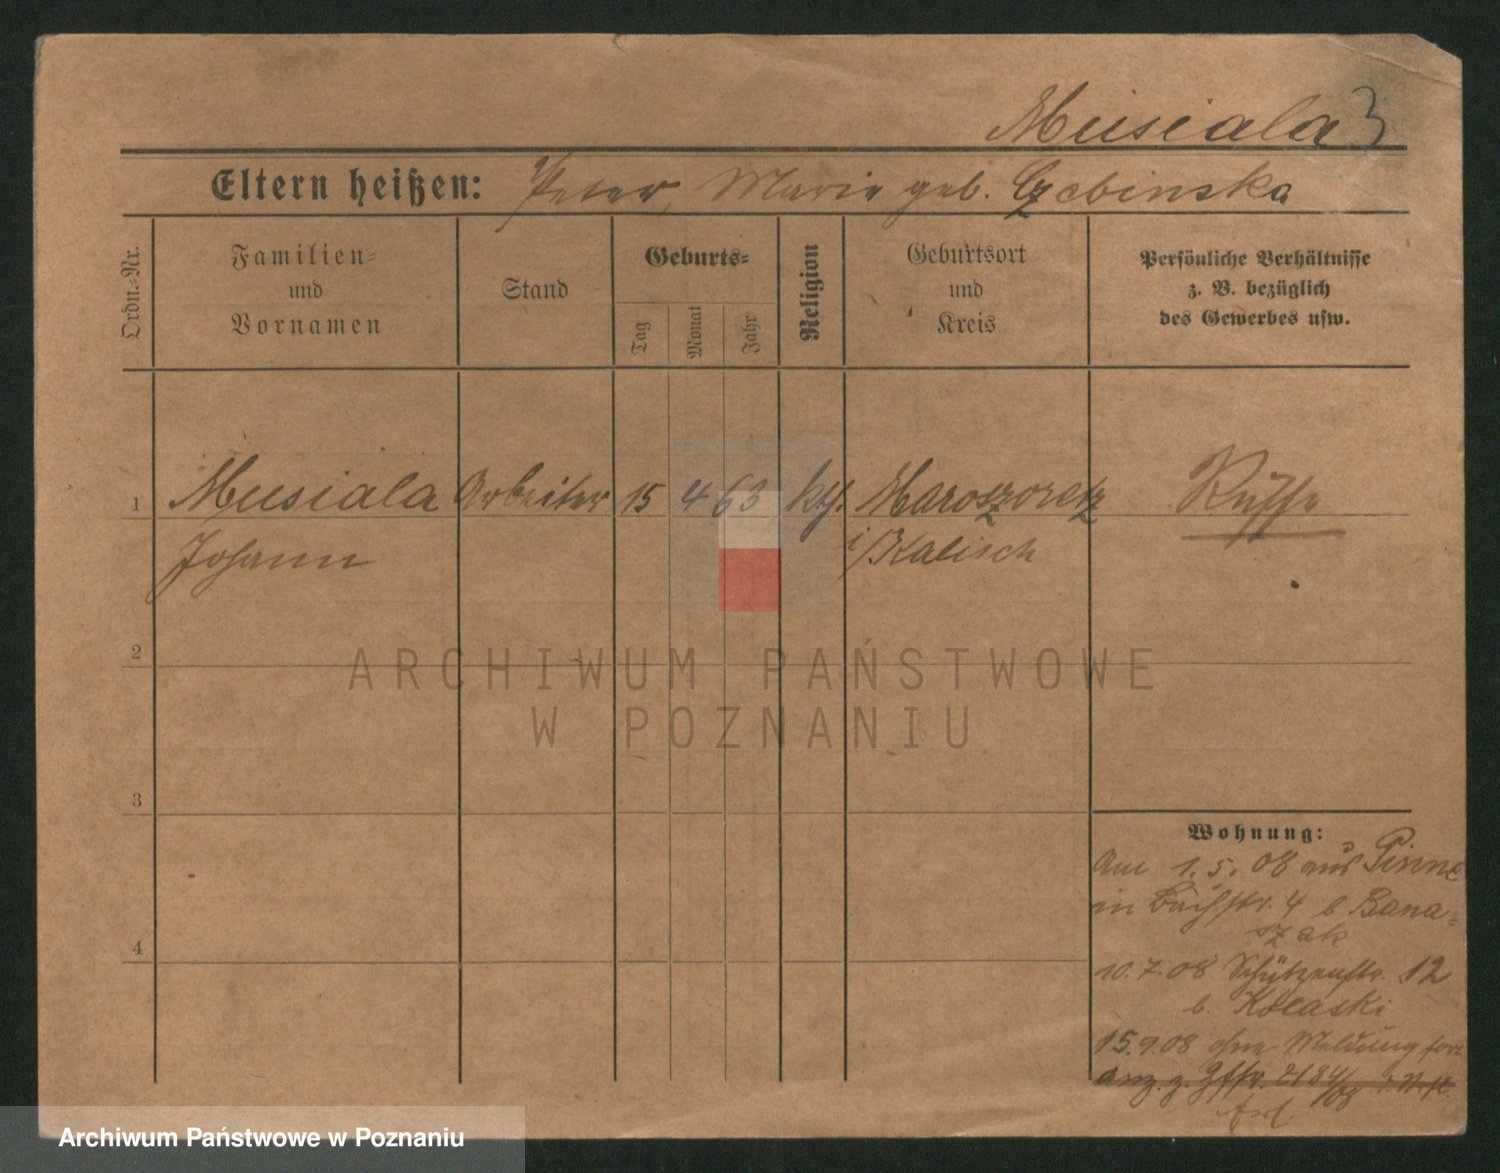 Musiala 3
Eltern heißen: Peter, Marie geb. Czebinska
Ordn.-Nr.
Familien-
und
Vornamen
Stand
Geburts-
Tag
Monat
Jahr
Religion
Geburtsort
und
Kreis
Persönliche Verhältnisse
z. B. bezüglich
des Gewerbes usw.
1 Musiala Arbeiter 15 4 63 kth. Maroszoretz Russe
Johann i/Kalisch
ARCHIWUM PAŃSTWOWE
W POZNANIU
2
3
4
Wohnung:
Am 1.5.08 aus Pinne
in Bachstr. 4 b Bana-
szak
10.7.08 Schützenstr. 12
b. Kolaski
15.9.08 ohne Meldung fort
Anz. z.
Archiwum Państwowe w Poznaniu